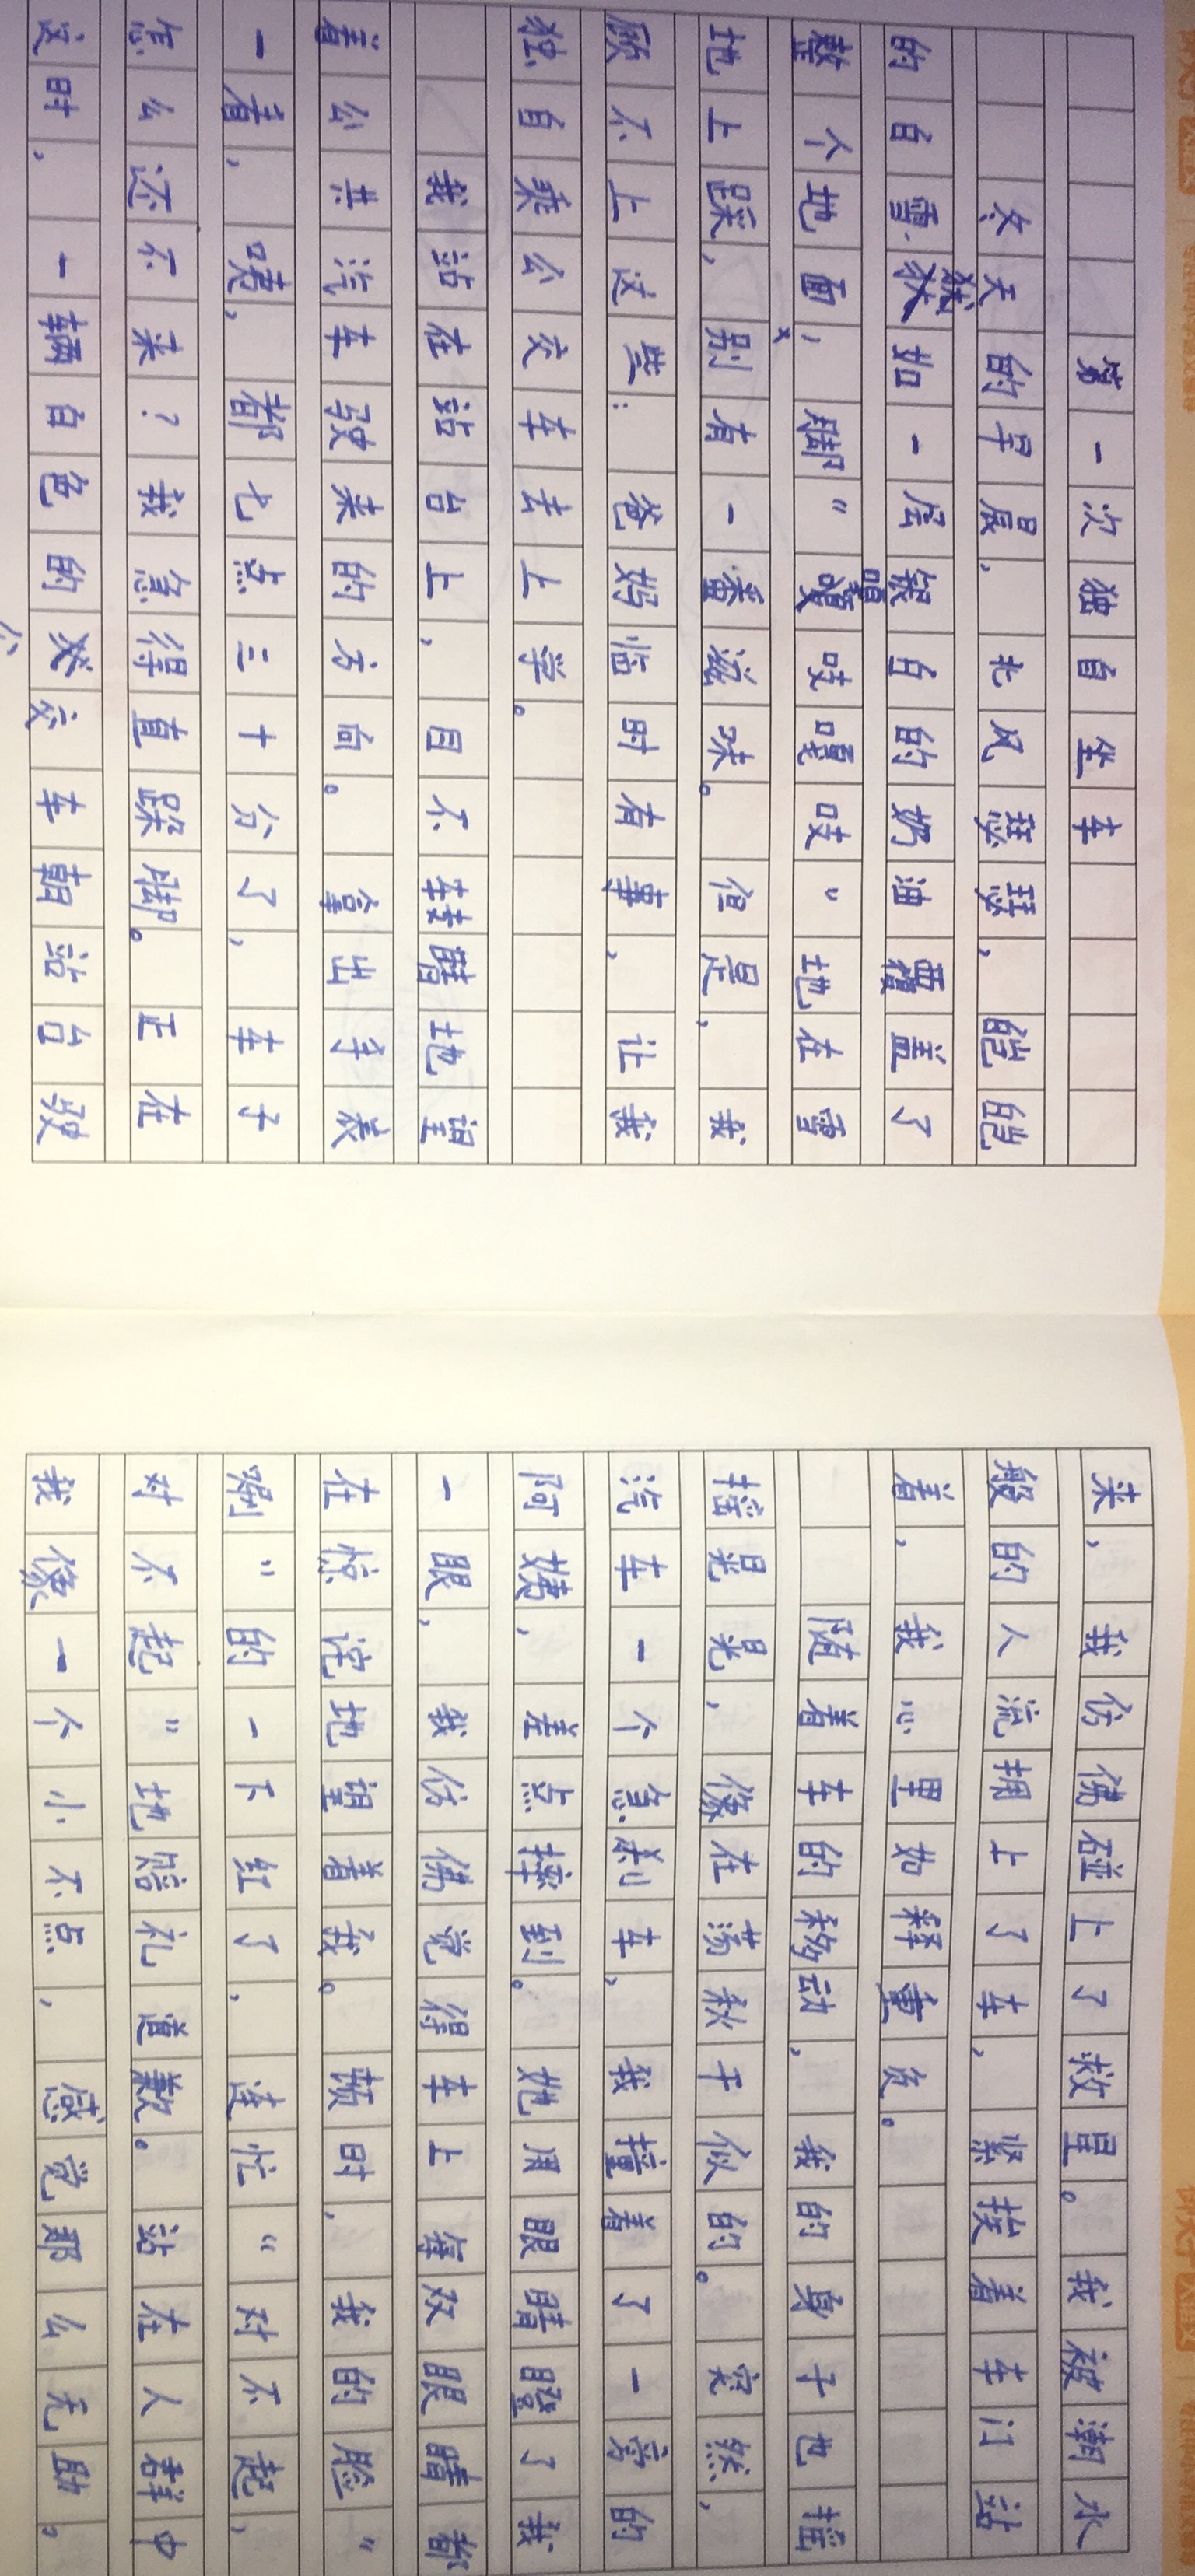 第一次独自坐车
冬天的早晨，北风瑟瑟，皑皑
的白雪犹如一层银白的奶油覆盖了
整个地面，脚“嘎吱嘎吱”地在雪
地上踩，别有一番滋味。但是，我
顾不上这些：爸妈临时有事，让我
独自乘公交车去上学。
我站在站台上，目不转睛地望
着公共汽车驶来的方向。拿出手表
一看，嘿，都七点三十分了，车子
怎么还不来？我急得直跺脚。正在
这时，一辆白色的公交车朝站台驶
来，我仿佛碰上了救星。我被潮水
般的人流拥上了车，紧挨着车门站
着，我心里如释重负。
随着车的移动，我的身子也摇
摇晃晃，像在荡秋千似的。突然，
汽车一个急刹车，我撞着了一旁的
阿姨，差点摔到。她用眼睛瞪了我
一眼，我仿佛觉得车上每双眼睛都
在惊诧地望着我。顿时，我的脸“
唰”的一下红了，连忙“对不起，
对不起”地赔礼道歉。站在人群中
我像一个小不点，感觉那么无助。